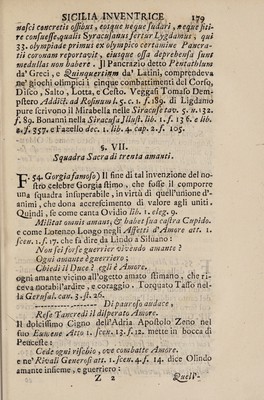 SICILIA INVENTRICE 179
nosci concretis ossibus, eoque neque sudari, neque siti-
re consuesse, qualis Syracusanus fertur Lygdamus, qui
33. olympiade primus ex olympico certamine Pancra-
tii coronam reportavit, eiusque ossa deprehensa sunt
medullas non habere. Il Pancrazio detto Pentathlum
da' Greci, e Quinquertium da' Latini, comprendeva
ne' giochi olimpici, cinque combattimenti del Corso,
Disco, Salto, Lotta, e Cesto. Veggasi Tomaso Dem-
pstero Addict. ad Rosinum l. 5. c. 1. f. 189. di Ligdamo
pure scrivono il Mirabella nelle Siracuse tav. 5. n. 132.
f. 89. Bonanni nella Siracusa Illust. lib. 1. f. 136. e lib.
2. f. 357. e Fazello dec. 1. lib. 4. cap. 2. f. 105.
§. VII.
Squadra Sacra di trenta amanti.
F. 54. Gorgia famoso) Il fine di tal invenzione del no-
stro celebre Gorgia stimo, che fusse il comporre
una squadra insuperabile, in virtù di quell'unione d'
animi, che dona accrescimento di valore agli uniti.
Quindi, se come canta Ovidio lib. 1. eleg. 9.
Militat omnis amant, & habet sua castra Cupido.
e come Lotenzo Longo negli Affetti d'Amore att. 1.
scen. 1. f. 17. che fà dire da Lindo a Silvano:
Non fei forse guerrier vivendo amante?
Ogni amante è guerriero;
Chiedi il Duce? egli è Amore,
ogni amante vicino all'ogetto amato stimano, che ri-
ceva notabil'ardire, e coraggio. Torquato Tasso nel-
la Gerusal. can. 3. st. 26.
---------- Di pauroso audace,
Rese Tancredi il disperato Amore.
Il dolcissimo Cigno dell'Adria Apostolo Zeno nel
suo Eumene Atto 1. scen. 13. f. 12. mette in bocca di
Peuceste:
Cede ogni rischio, ove combatte Amore.
e ne' Rivali Generosi att. 1. scen. 4. f. 14. dice Olindo
amante insieme, e guerriero:
Z 2 Quell'-